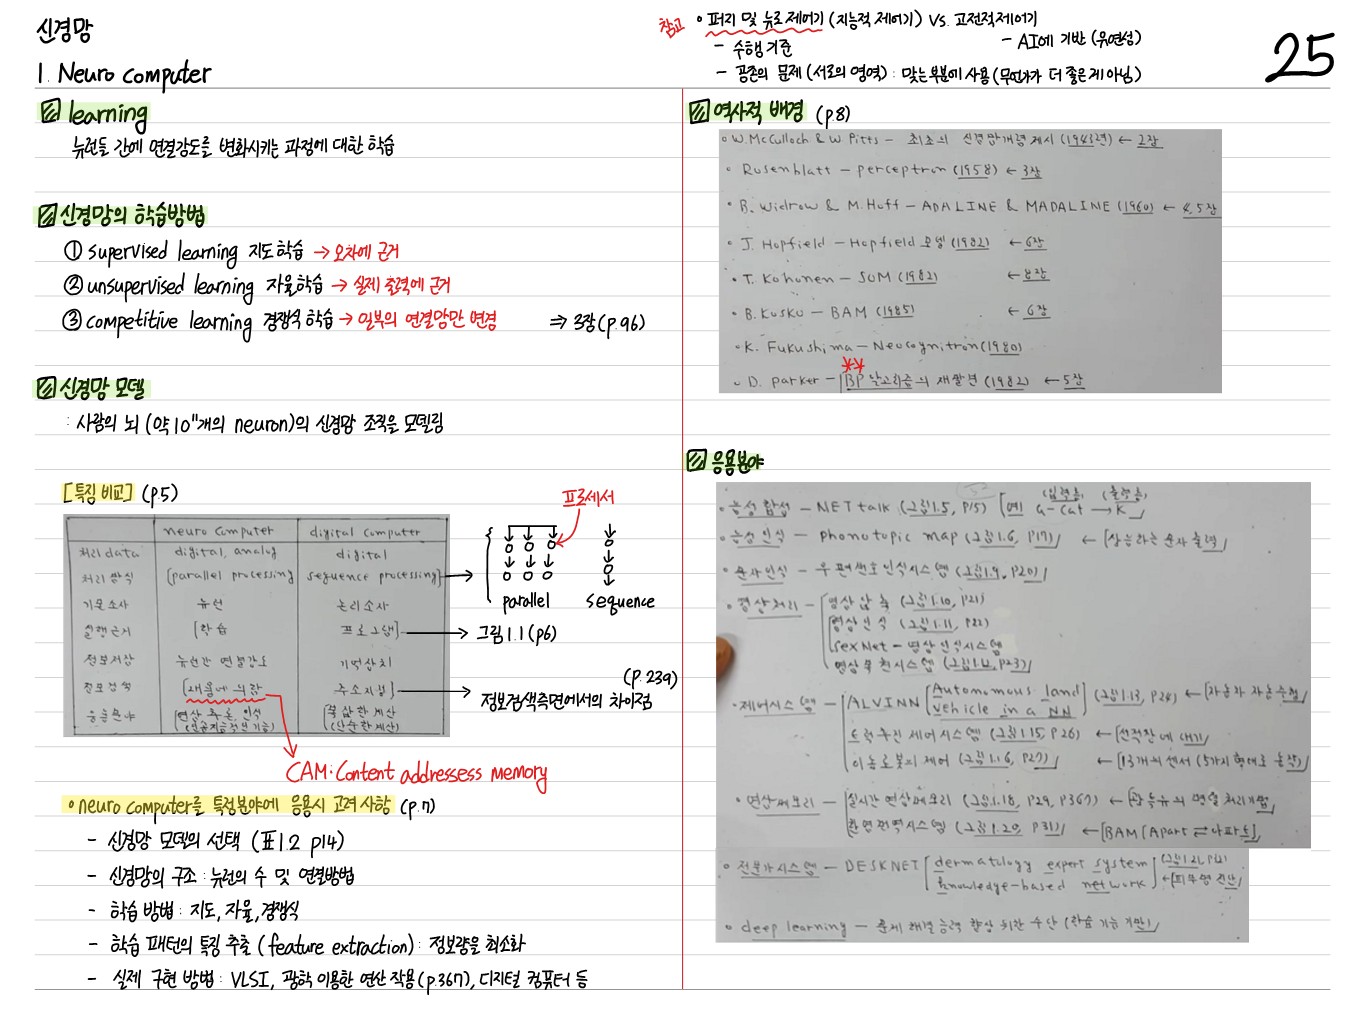 신경망
1. Neuro computer
참고 ◦ 퍼지 및 뉴로 제어기 (지능적 제어기) VS. 고전적 제어기
- 수행 기준
- AI에 기반 (유연성)
- 공존의 문제 (서로의 영역) : 맞는 부분에 사용 (무언가가 더 좋은게 아님)
25
learning
뉴런들 간에 연결강도를 변화시키는 과정에 대한 학습
신경망의 학습방법
① supervised learning 지도학습 → 오차에 근거
② unsupervised learning 자율학습 → 실제 출력에 근거
③ competitive learning 경쟁식 학습 → 일부의 연결망만 변경 ⇒ 3장(p.96)
신경망 모델
: 사람의 뇌 (약 10¹¹개의 neuron)의 신경망 조직을 모델링
[특징 비교] (p.5)
neuro computer digital computer
처리 data digital, analog digital
처리 방식 [parallel processing sequence processing]
기본소자 뉴런 논리소자
실행근거 [학습 프로그램]
정보저장 뉴런간 연결강도 기억장치
정보검색 [내용에 의함 주소지정]
응용분야 [연상 추론, 인식 [복잡한 계산
(인공지능적인 기능) (단순한 계산)
프로세서
parallel sequence
그림 1.1 (p6)
(p.239)
정보검색측면에서의 차이점
CAM : Content addressess memory
◦ neuro computer를 특정분야에 응용시 고려 사항 (p.7)
- 신경망 모델의 선택 (표1.2 p14)
- 신경망의 구조 : 뉴런의 수 및 연결방법
- 학습 방법 : 지도, 자율, 경쟁식
- 학습 패턴의 특징 추출 (feature extraction) : 정보량을 최소화
- 실제 구현 방법 : VLSI, 광학 이용한 연산 작용(p.367), 디지털 컴퓨터 등
역사적 배경 (p8)
◦ W. McCulloch & W. Pitts - 최초의 신경망개념 제시 (1943년) ← 2장
◦ Rosenblatt - perceptron (1958) ← 3장
◦ B. Widrow & M. Hoff - ADALINE & MADALINE (1960) ← 4, 5장
◦ J. Hopfield - Hopfield 모델 (1982) ← 6장
◦ T. Kohonen - SOM (1982) ← 8장
◦ B. Kosko - BAM (1985) ← 6장
◦ K. Fukushima - Neocognitron (1980)
◦ D. Parker - BP 알고리즘의 재발견 (1982) ← 5장
응용분야
입력층, 출력층,
◦ 음성 합성 - NET talk (그림1.5, p15) [예] a-cat → K
◦ 음성 인식 - phonotopic map (그림1.6, p17) ← [상응하는 문자 출력]
◦ 문자인식 - 우편번호 인식시스템 (그림1.9, p20)
◦ 영상처리 - 영상 압축 (그림1.10, p21)
영상 인식 (그림1.11, p22)
sexNet - 영상 인식시스템
영상 복원시스템 (그림1.12, p23)
◦ 제어시스템 - ALVINN [Autonomous land vehicle in a NN] (그림1.13, p24) ← [자동차 자동주행]
트럭후진 제어시스템 (그림1.15, p26) ← [선적장에 대기]
이동로봇의 제어 (그림1.16, p27) ← [13개의 센서 (5가지 형태로 동작)]
◦ 연상메모리 - 실시간 연상메모리 (그림1.18, p29, p367) ← [광학류의 병렬 처리기법]
한영번역시스템 (그림1.20, p31) ← [BAM (Apart ⇄ 아파트)]
◦ 전문가시스템 - DESKNET [dermatology expert system (그림1.21, p32)
knowledge-based network] ← [피부병 진단]
◦ deep learning - 문제 해결 능력 향상 위한 수단 (학습 기능 기반)